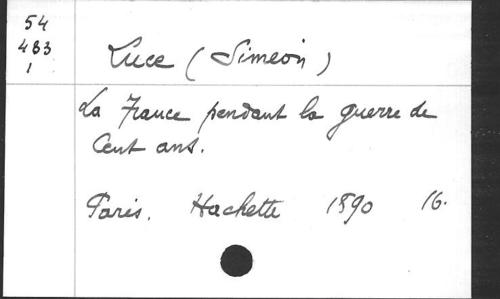 54
483
1
Luce (Simeon)
La France pendant la guerre de
Cent ans.
Paris. Hachette 1890 16.